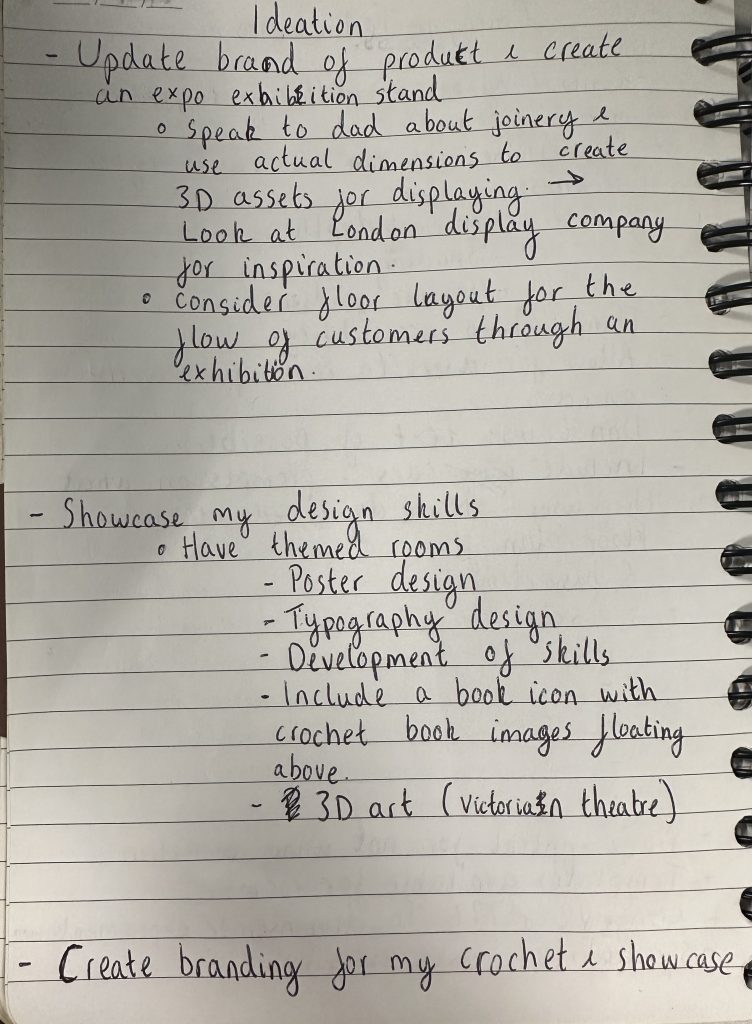 Ideation
- Update brand of product & create
an expo exhibition stand
o Speak to dad about joinery &
use actual dimensions to create
3D assets for displaying. →
Look at London display company
for inspiration.
o Consider floor layout for the
flow of customers through an
exhibition.
- Showcase my design skills
o Have themed rooms
- Poster design
- Typography design
- Development of skills
- Include a book icon with
crochet book images floating
above.
- 3D art (Victorian theatre)
- Create branding for my crochet & showcase